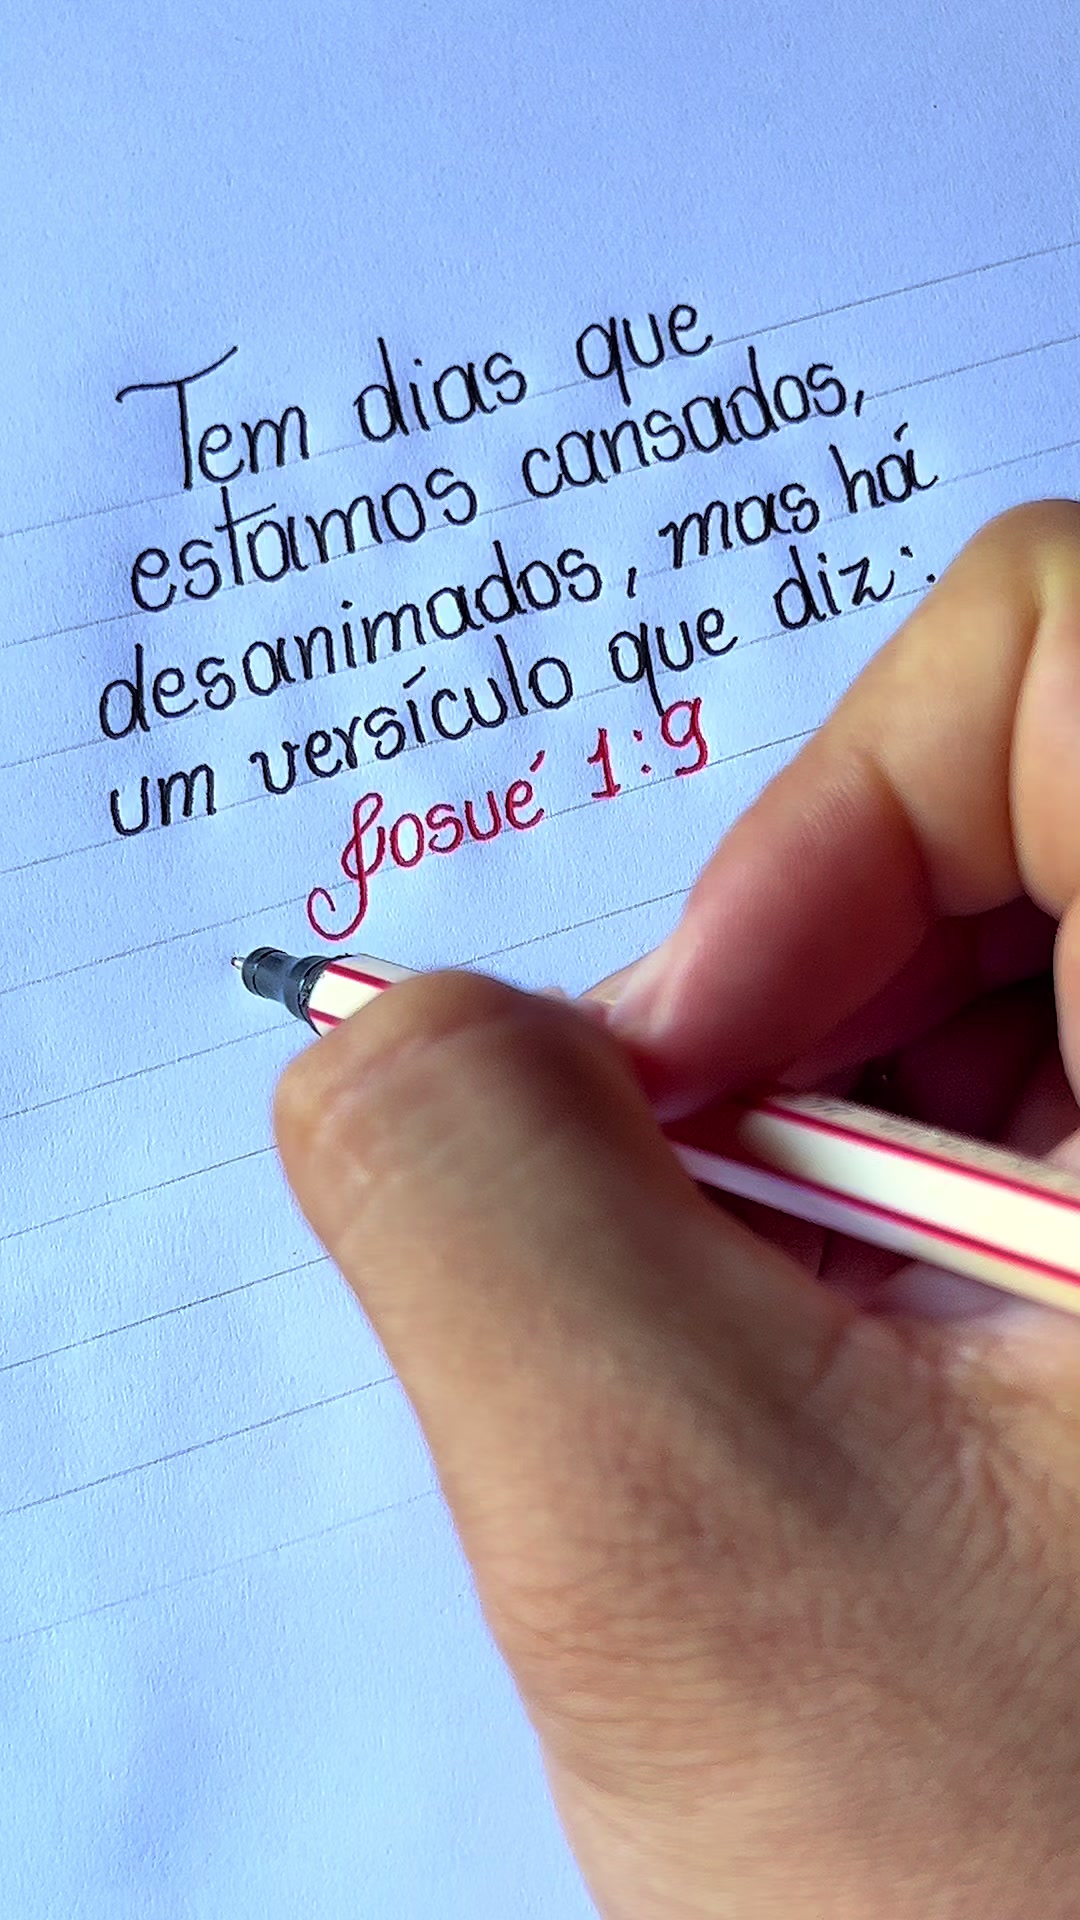 Tem dias que
estamos cansados,
desanimados, mas há
um versículo que diz:
Josué 1:9